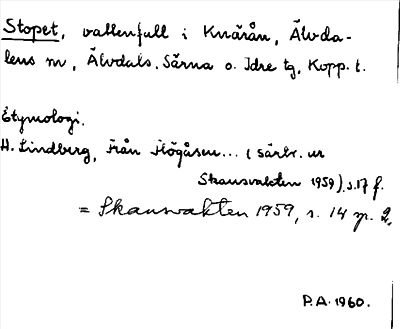 Stopet, vattenfall i Knärån, Älvda-
lens sn, Älvdals, Särna o. Idre tg, Kopp. l.
Etymologi.
H. Lindberg, Från Högåsen... (särtr. ur
Skansvakten 1959), s. 17 f.
= Skansvakten 1959, s. 14 sp. 2.
P.A. 1960.